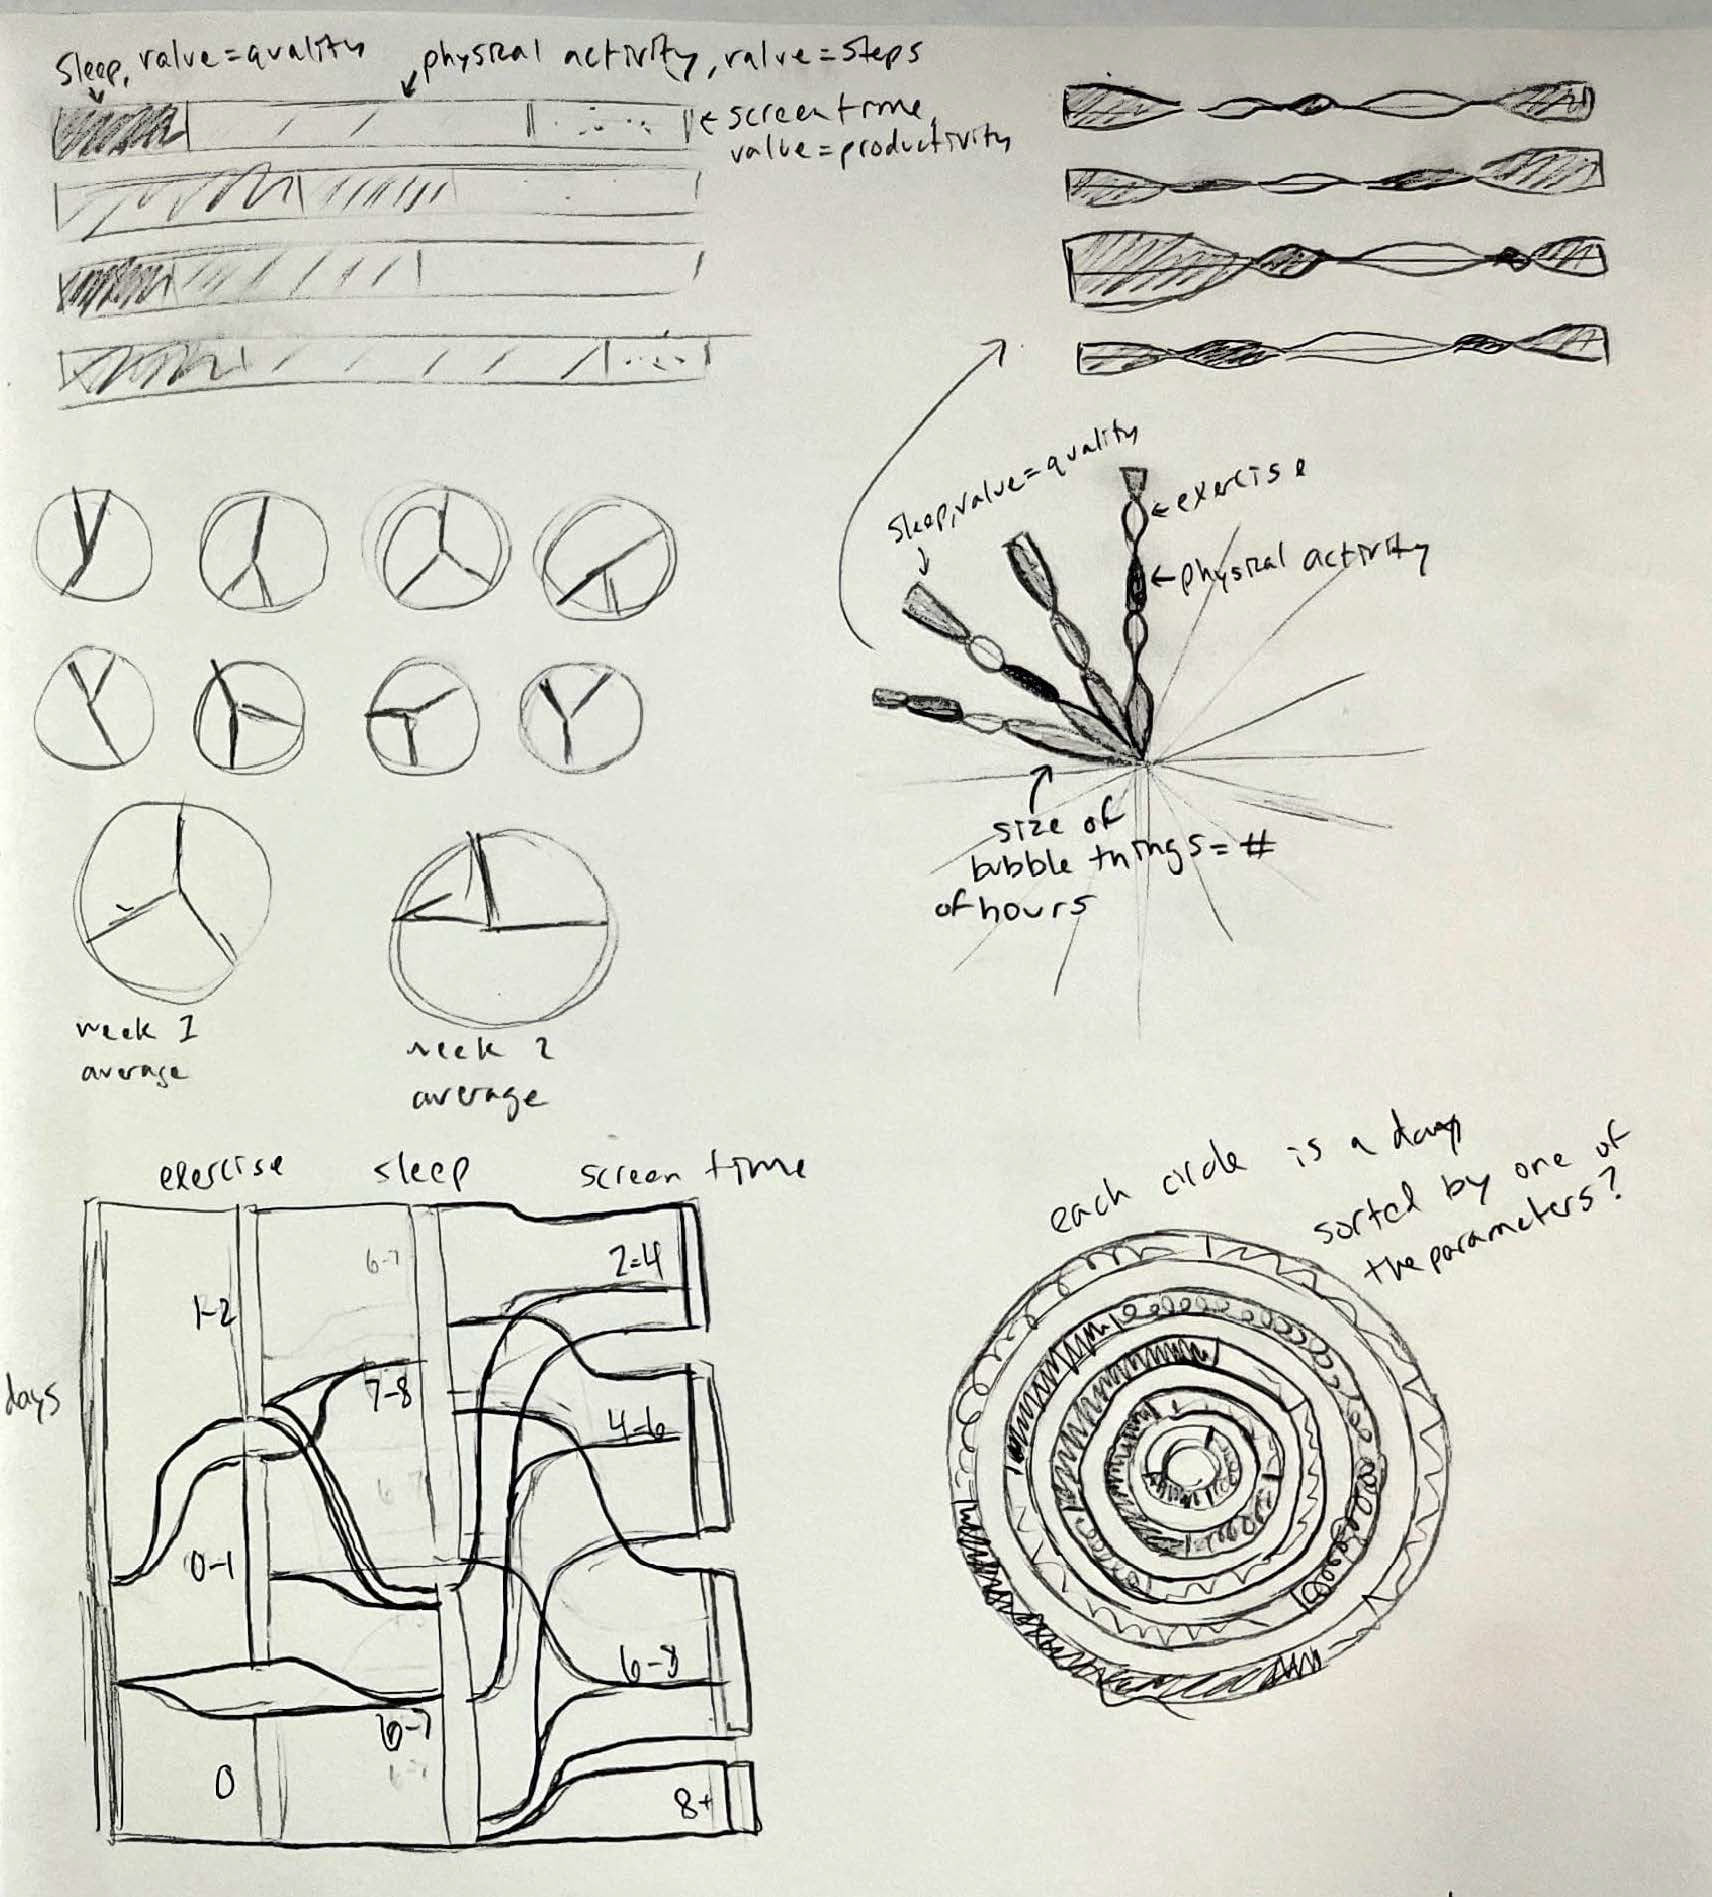 Sleep, value=quality
physical activity, value=steps
screentime,
value=productivity
Sleep, value=quality
exercise
physical activity
size of
bubble things=#
of hours
week 1
average
week 2
average
exercise
sleep
screen time
days
1-2
0-1
0
6-7
7-8
6-7
2-4
4-6
6-8
8+
each circle is a day
sorted by one of
the parameters?